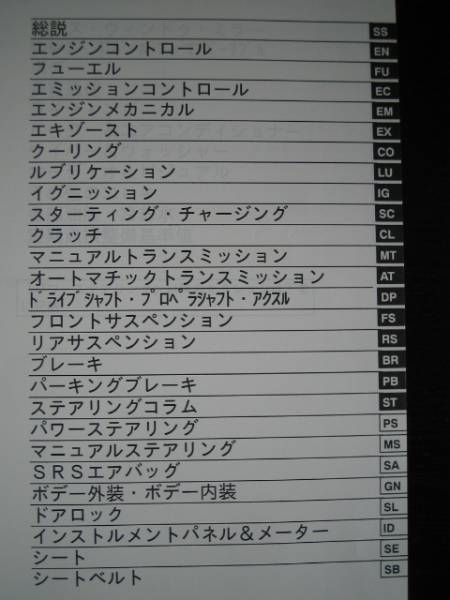 総説 SS
エンジンコントロール EN
フューエル FU
エミッションコントロール EC
エンジンメカニカル EM
エキゾースト EX
クーリング CO
ルブリケーション LU
イグニッション IG
スターティング・チャージング SC
クラッチ CL
マニュアルトランスミッション MT
オートマチックトランスミッション AT
ドライブシャフト・プロペラシャフト・アクスル DP
フロントサスペンション FS
リアサスペンション RS
ブレーキ BR
パーキングブレーキ PB
ステアリングコラム ST
パワーステアリング PS
マニュアルステアリング MS
ＳＲＳエアバッグ SA
ボデー外装・ボデー内装 GN
ドアロック SL
インストルメントパネル＆メーター ID
シート SE
シートベルト SB